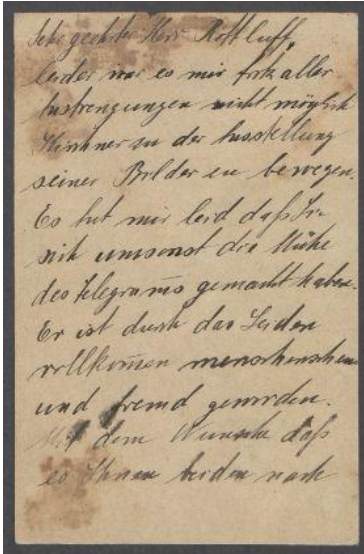 Sehr geehrter Herr Rottluff,
leider war es mir trotz aller
Anstrengungen nicht möglich
Kirchner zu der Ausstellung
seiner Bilder zu bewegen.
Es tut mir leid daß Sie
sich umsonst die Mühe
des Telegram̄s gemacht haben.
Er ist durch das Leiden
vollkom̄en menschenscheu
und fremd geworden.
Mit dem Wunsche daß
es Ihnen beiden nach